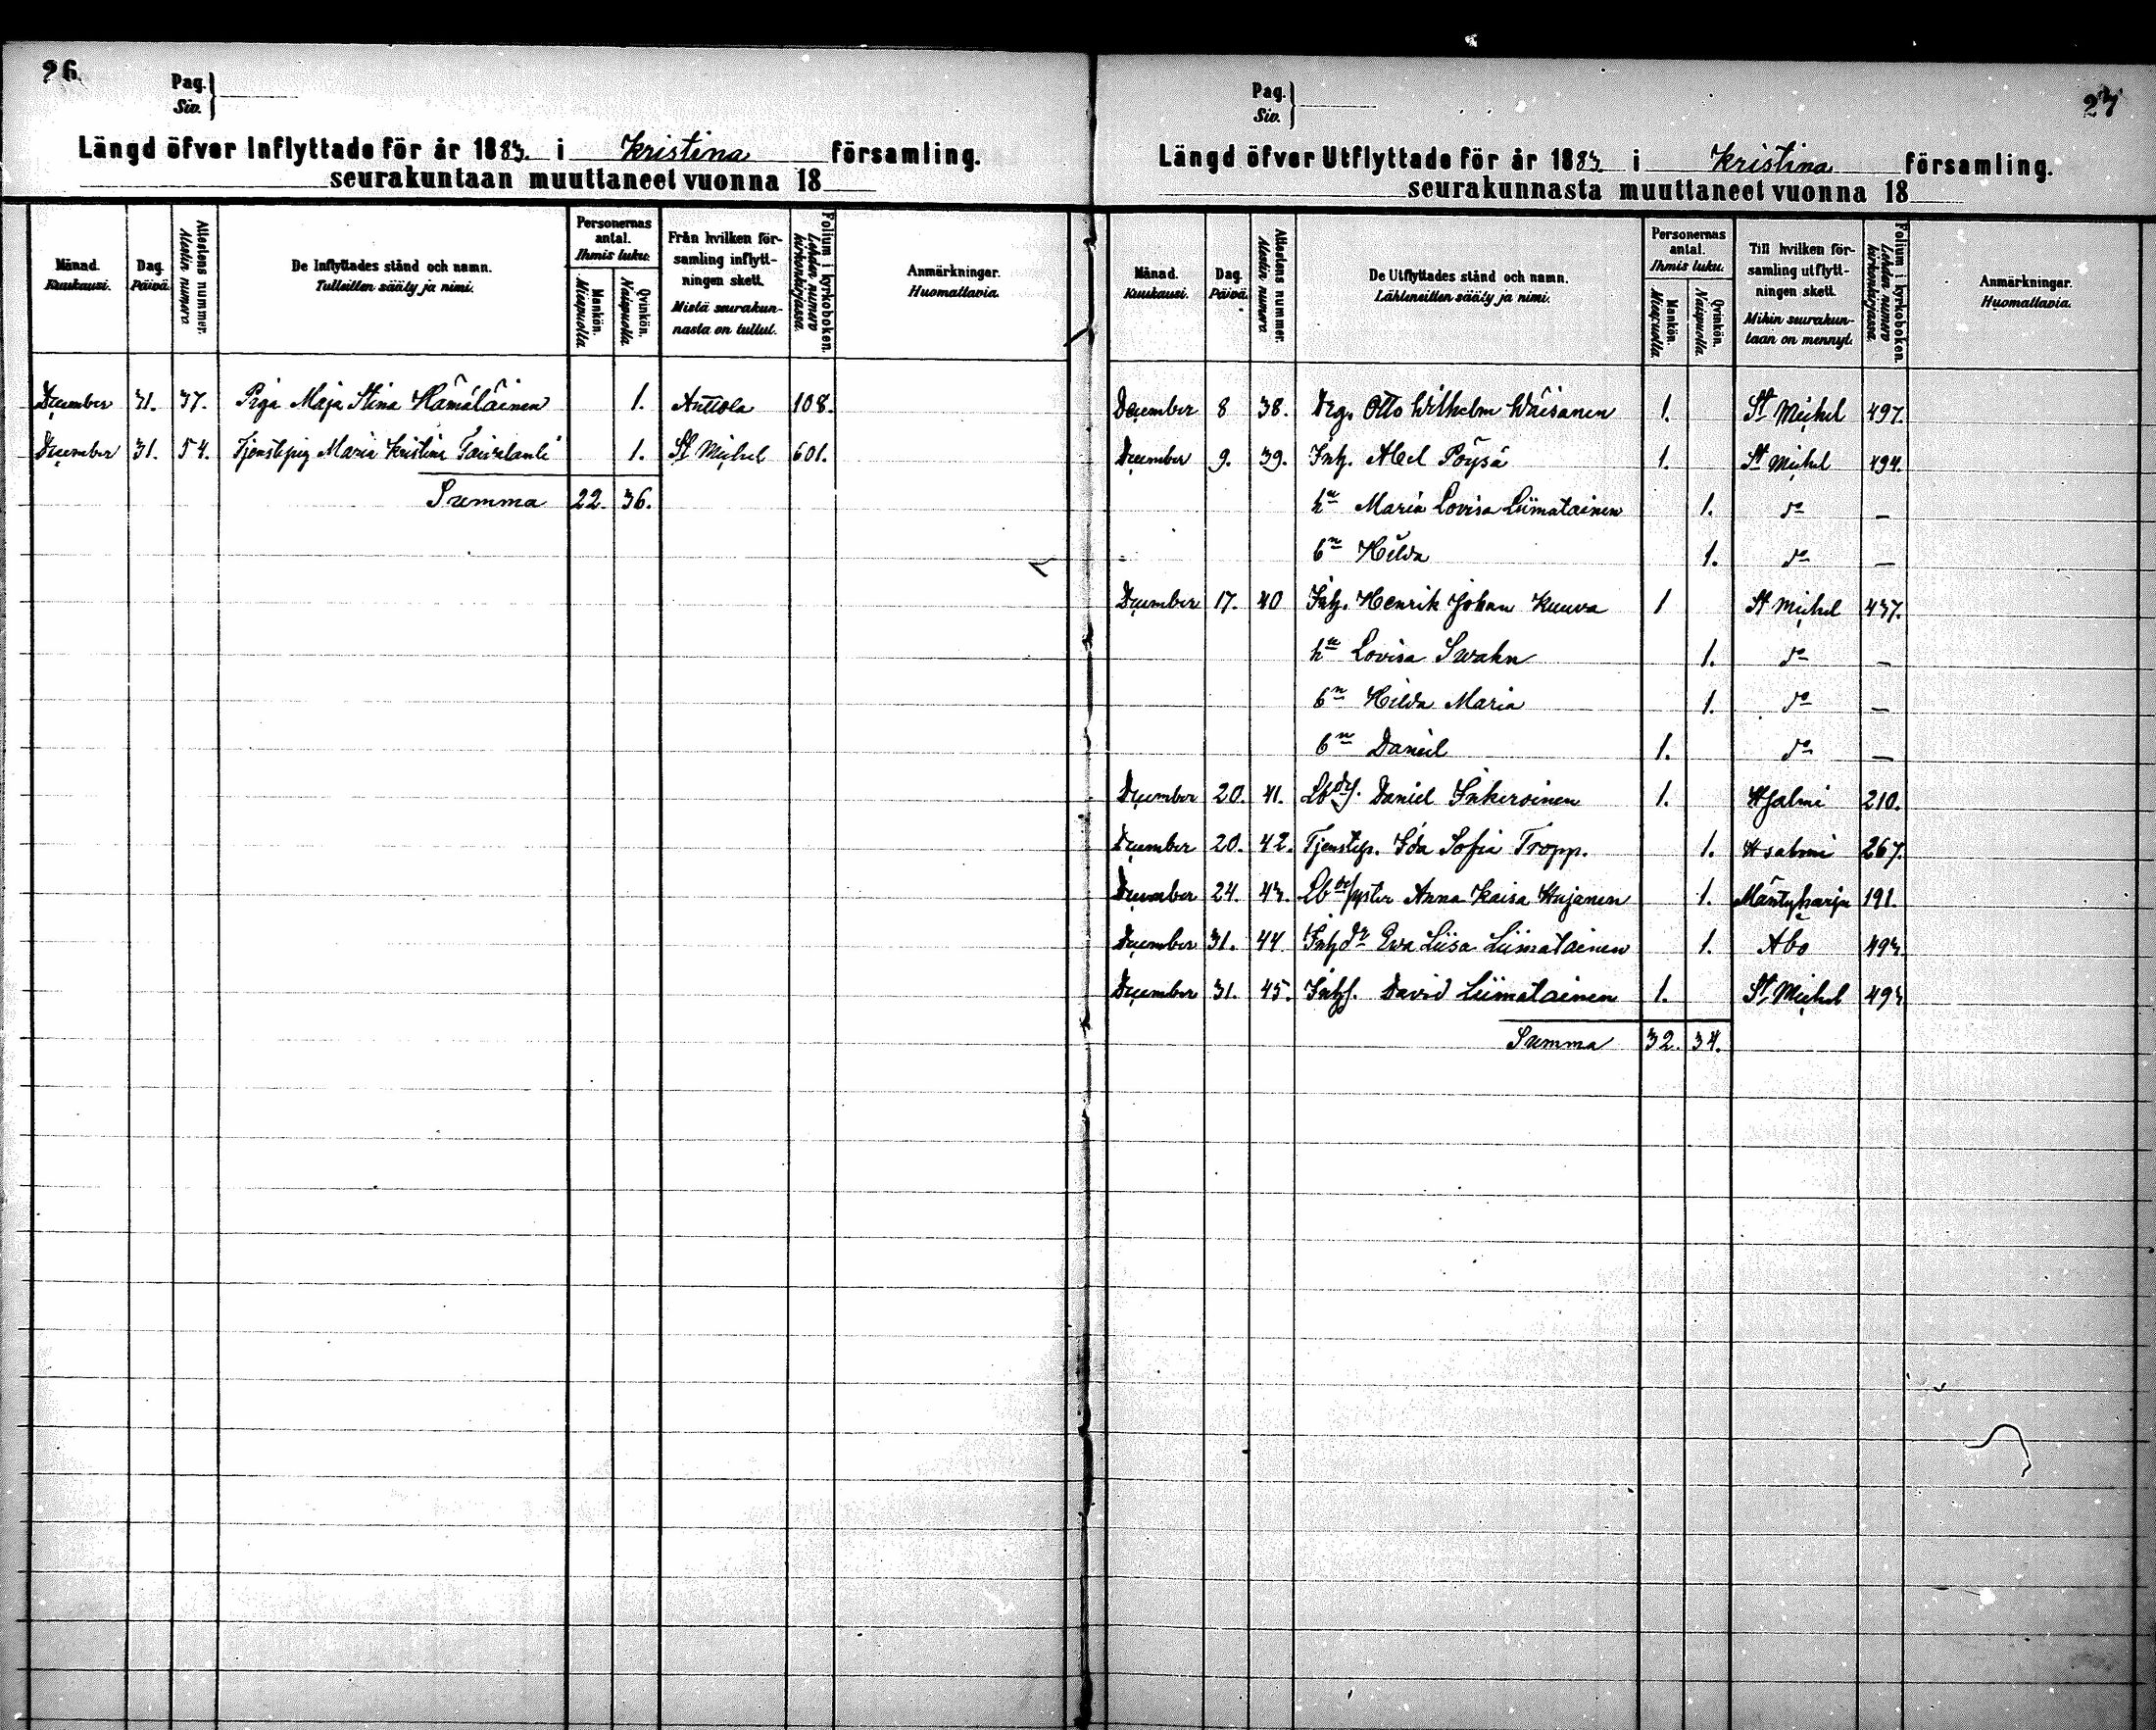 26.
Pag.
Siv.
Längd öfver Inflyttade för år 1883. i Kristina församling.
seurakuntaan muuttaneet vuonna 18
Månad. Kuukausi. Dag. Päivä. Attestens nummer. Alestin numero De Inflyttades stånd och namn. Tulleitten sääty ja nimi. Personernas antal. Ihmis luku. Mankön. Miespuolia Qvinkön. Naispuolia Från hvilken församling inflyttningen skett. Mistä seurakunnasta on tullut. Folium i kyrkoboken. Lehden numero kirkonkirjassa. Anmärkningar. Huomattavia.
December 31. 37. Piga Maja Stina Hämäläinen 1. Anttola 108.
December 31. 54. Tjenstepig Maria Kristina 1. St Michel 601.
Summa 22. 36.
27
Pag.
Siv.
Längd öfver Utflyttade för år 1883. i Kristina församling.
seurakunnasta muuttaneet vuonna 18
Månad. Kuukausi. Dag. Päivä. Attestens nummer. Alestin numero De Utflyttades stånd och namn. Lähteneitten sääty ja nimi. Personernas antal. Ihmis luku. Mankön. Miespuolia Qvinkön. Naispuolia Till hvilken församling utflyttningen skett. Mihin seurakuntaan on mennyt. Folium i kyrkoboken. Lehden numero kirkonkirjassa. Anmärkningar. Huomattavia.
December 8 38. Drg. Otto Wilhelm Wäisänen 1. St Michel 497.
December 9. 39. Inh. Abel Pöysä 1. St Michel 494.
hu Maria Lovisa Liimatainen 1. do —
bn Hilda 1. do —
December 17. 40 Inh. Henrik Johan Kuuva 1 St Michel 437.
hu Lovisa Swahn 1. do —
bn Hilda Maria 1. do —
bn Daniel 1. do —
December 20. 41. Daniel Inkeroinen 1. 210.
December 20. 42. Tjenstep. Ida Sofia Tropp. 1. 267.
December 24. 43. Anna Kaisa Hujanen 1. Mäntyharju 191.
December 31. 44 Inhdr Ewa Liisa Liimatainen 1. Åbo 493
December 31. 45. Inhs. David Liimatainen 1. St Michel 493
Summa 32. 34.